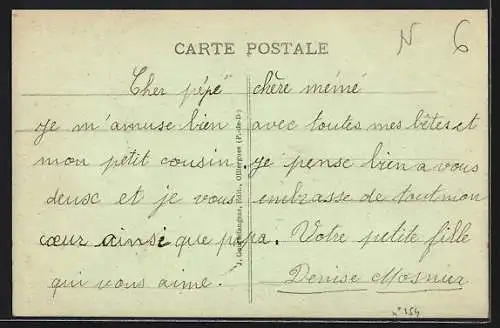 N 6
CARTE POSTALE
Cher pépé chère mémé
je m'amuse bien avec toutes mes bêtes et
mon petit cousin. je pense bien a vous
deuse et je vous embrasse de tout mon
cœur ainsi que papa. Votre petite fille
qui vous aime. Denise Mosnier
n° 154
Édit., Olliergues (P.-de-D.)